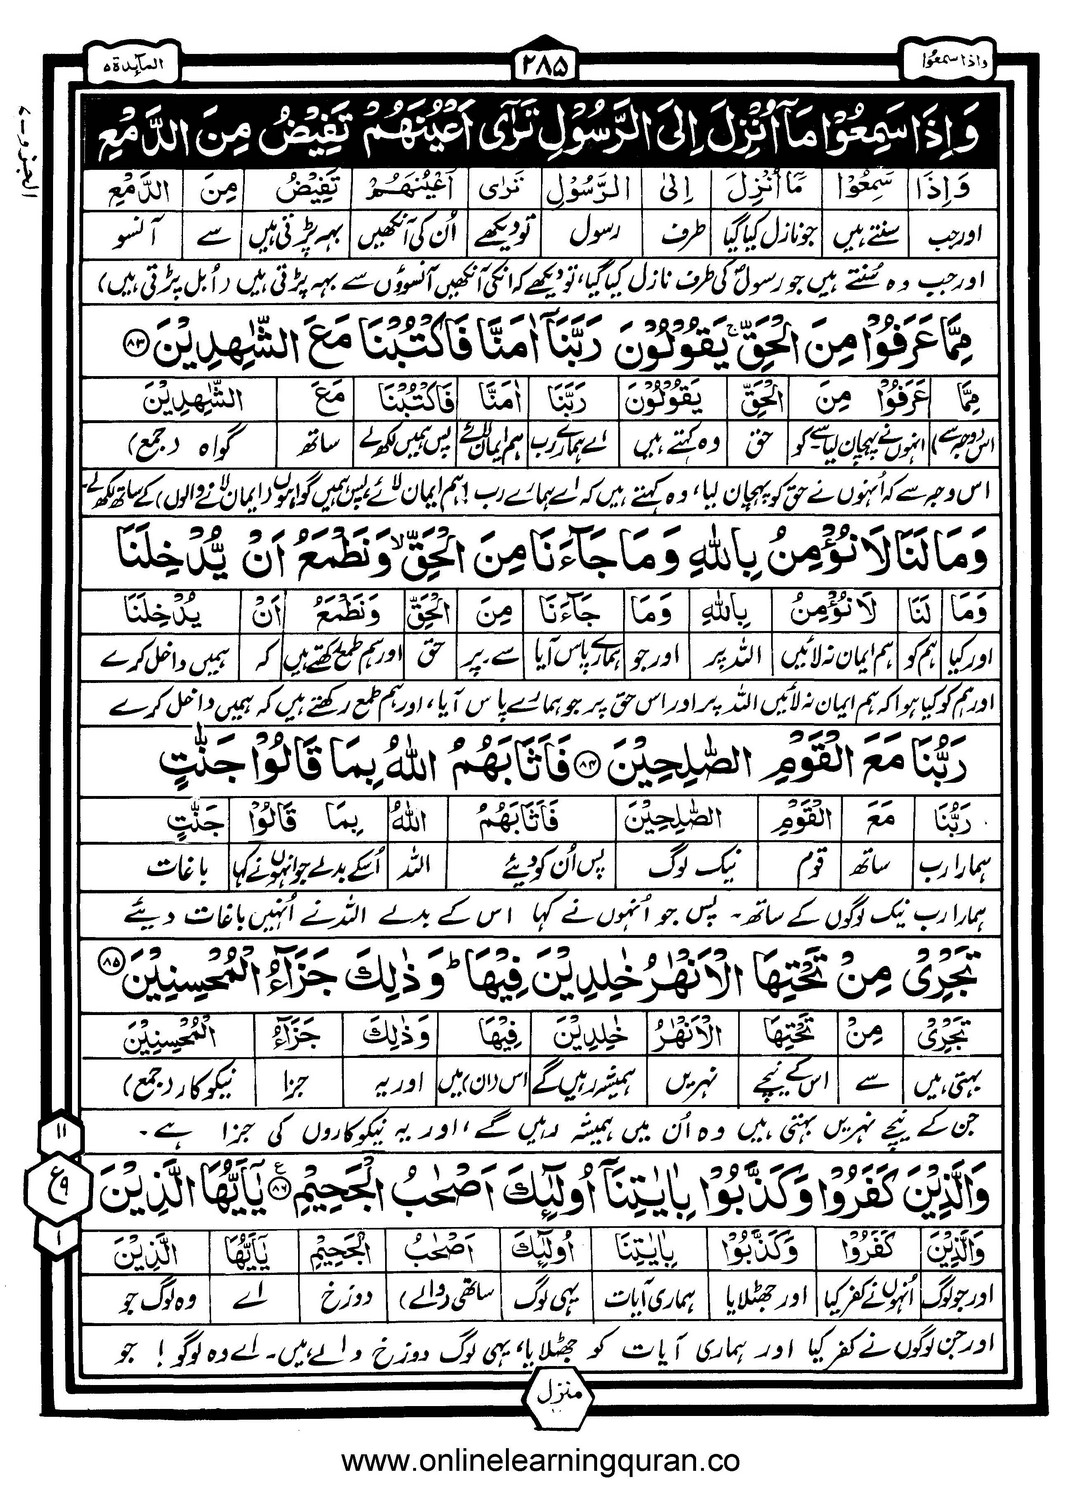 واذا سمعوا
۲۸۵
المآئدة ۵
الجزو ـ ۷
وَاِذَا سَمِعُوْا مَاۤ اُنْزِلَ اِلَى الرَّسُوْلِ تَرٰۤى اَعْيُنَهُمْ تَفِيْضُ مِنَ الدَّمْعِ
وَاِذَا سَمِعُوْا مَاۤ اُنْزِلَ اِلَى الرَّسُوْلِ تَرٰۤى اَعْيُنَهُمْ تَفِيْضُ مِنَ الدَّمْعِ
اور جب سنتے ہیں جو نازل کیا گیا طرف رسول تو دیکھے اُن کی آنکھیں بہہ پڑتی ہیں سے آنسو
اور جب وہ سُنتے ہیں جو رسولؐ کی طرف نازل کیا گیا، تو دیکھے کہ انکی آنکھیں آنسوؤں سے بہہ پڑتی ہیں (اُبل پڑتی ہیں)
مِمَّا عَرَفُوْا مِنَ الْحَقِّ ۚ يَقُوْلُوْنَ رَبَّنَاۤ اٰمَنَّا فَاكْتُبْنَا مَعَ الشّٰهِدِيْنَ ۸۳
مِمَّا عَرَفُوْا مِنَ الْحَقِّ يَقُوْلُوْنَ رَبَّنَا اٰمَنَّا فَاكْتُبْنَا مَعَ الشّٰهِدِيْنَ
اس (وجہ سے) انہوں نے پہچان لیا سے۔ کو حق وہ کہتے ہیں اے ہمارے رب ہم ایمان لائے پس ہمیں لکھ لے ساتھ گواہ (جمع)
اس وجہ سے کہ اُنہوں نے حق کو پہچان لیا، وہ کہتے ہیں کہ اے ہمارے رب! ہم ایمان لائے پس ہمیں گواہوں (ایمان لانے والوں) کے ساتھ لکھ لے۔
وَمَا لَنَا لَا نُؤْمِنُ بِاللّٰهِ وَمَا جَآءَنَا مِنَ الْحَقِّ ۙ وَنَطْمَعُ اَنْ يُّدْخِلَنَا
وَمَا لَنَا لَا نُؤْمِنُ بِاللّٰهِ وَمَا جَآءَنَا مِنَ الْحَقِّ وَنَطْمَعُ اَنْ يُدْخِلَنَا
اور کیا ہم کو ہم ایمان نہ لائیں اللہ پر اور جو ہمارے پاس آیا سے۔ پر حق اور ہم طمع رکھتے ہیں کہ ہمیں داخل کرے
اور ہم کو کیا ہوا کہ ہم ایمان نہ لائیں اللہ پر اور اس حق پر جو ہمارے پاس آیا، اور ہم طمع رکھتے ہیں کہ ہمیں داخل کرے
رَبُّنَا مَعَ الْقَوْمِ الصّٰلِحِيْنَ ۸۴ فَاَثَابَهُمُ اللّٰهُ بِمَا قَالُوْا جَنّٰتٍ
رَبُّنَا مَعَ الْقَوْمِ الصّٰلِحِيْنَ فَاَثَابَهُمُ اللّٰهُ بِمَا قَالُوْا جَنّٰتٍ
ہمارا رب ساتھ قوم نیک لوگ پس اُن کو دیئے اللہ اُسکے بدلے جو انہوں نے کہا باغات
ہمارا رب نیک لوگوں کے ساتھ۔ پس جو اُنہوں نے کہا اس کے بدلے اللہ نے اُنہیں باغات دیئے
تَجْرِىْ مِنْ تَحْتِهَا الْاَنْهٰرُ خٰلِدِيْنَ فِيْهَا ؕ وَذٰلِكَ جَزَآءُ الْمُحْسِنِيْنَ ۸۵
تَجْرِىْ مِنْ تَحْتِهَا الْاَنْهٰرُ خٰلِدِيْنَ فِيْهَا وَذٰلِكَ جَزَآءُ الْمُحْسِنِيْنَ
بہتی ہیں سے اس کے نیچے نہریں ہمیشہ رہیں گے اس (ان) میں اور یہ جزا نیکوکار (جمع)
جن کے نیچے نہریں بہتی ہیں وہ اُن میں ہمیشہ رہیں گے، اور یہ نیکوکاروں کی جزا ہے۔
وَالَّذِيْنَ كَفَرُوْا وَكَذَّبُوْا بِاٰيٰتِنَاۤ اُولٰٓئِكَ اَصْحٰبُ الْجَحِيْمِ ۸۶ ع يٰۤاَيُّهَا الَّذِيْنَ
وَالَّذِيْنَ كَفَرُوْا وَكَذَّبُوْا بِاٰيٰتِنَا اُولٰٓئِكَ اَصْحٰبُ الْجَحِيْمِ يٰۤاَيُّهَا الَّذِيْنَ
اور جو لوگ اُنہوں نے کفر کیا اور جھٹلایا ہماری آیات یہی لوگ ساتھی (والے) دوزخ اے وہ لوگ جو
اور جن لوگوں نے کفر کیا اور ہماری آیات کو جھٹلایا، یہی لوگ دوزخ والے ہیں۔ اے وہ لوگو! جو
۱۱
ع ۹
۱
منزل
www.onlinelearningquran.co